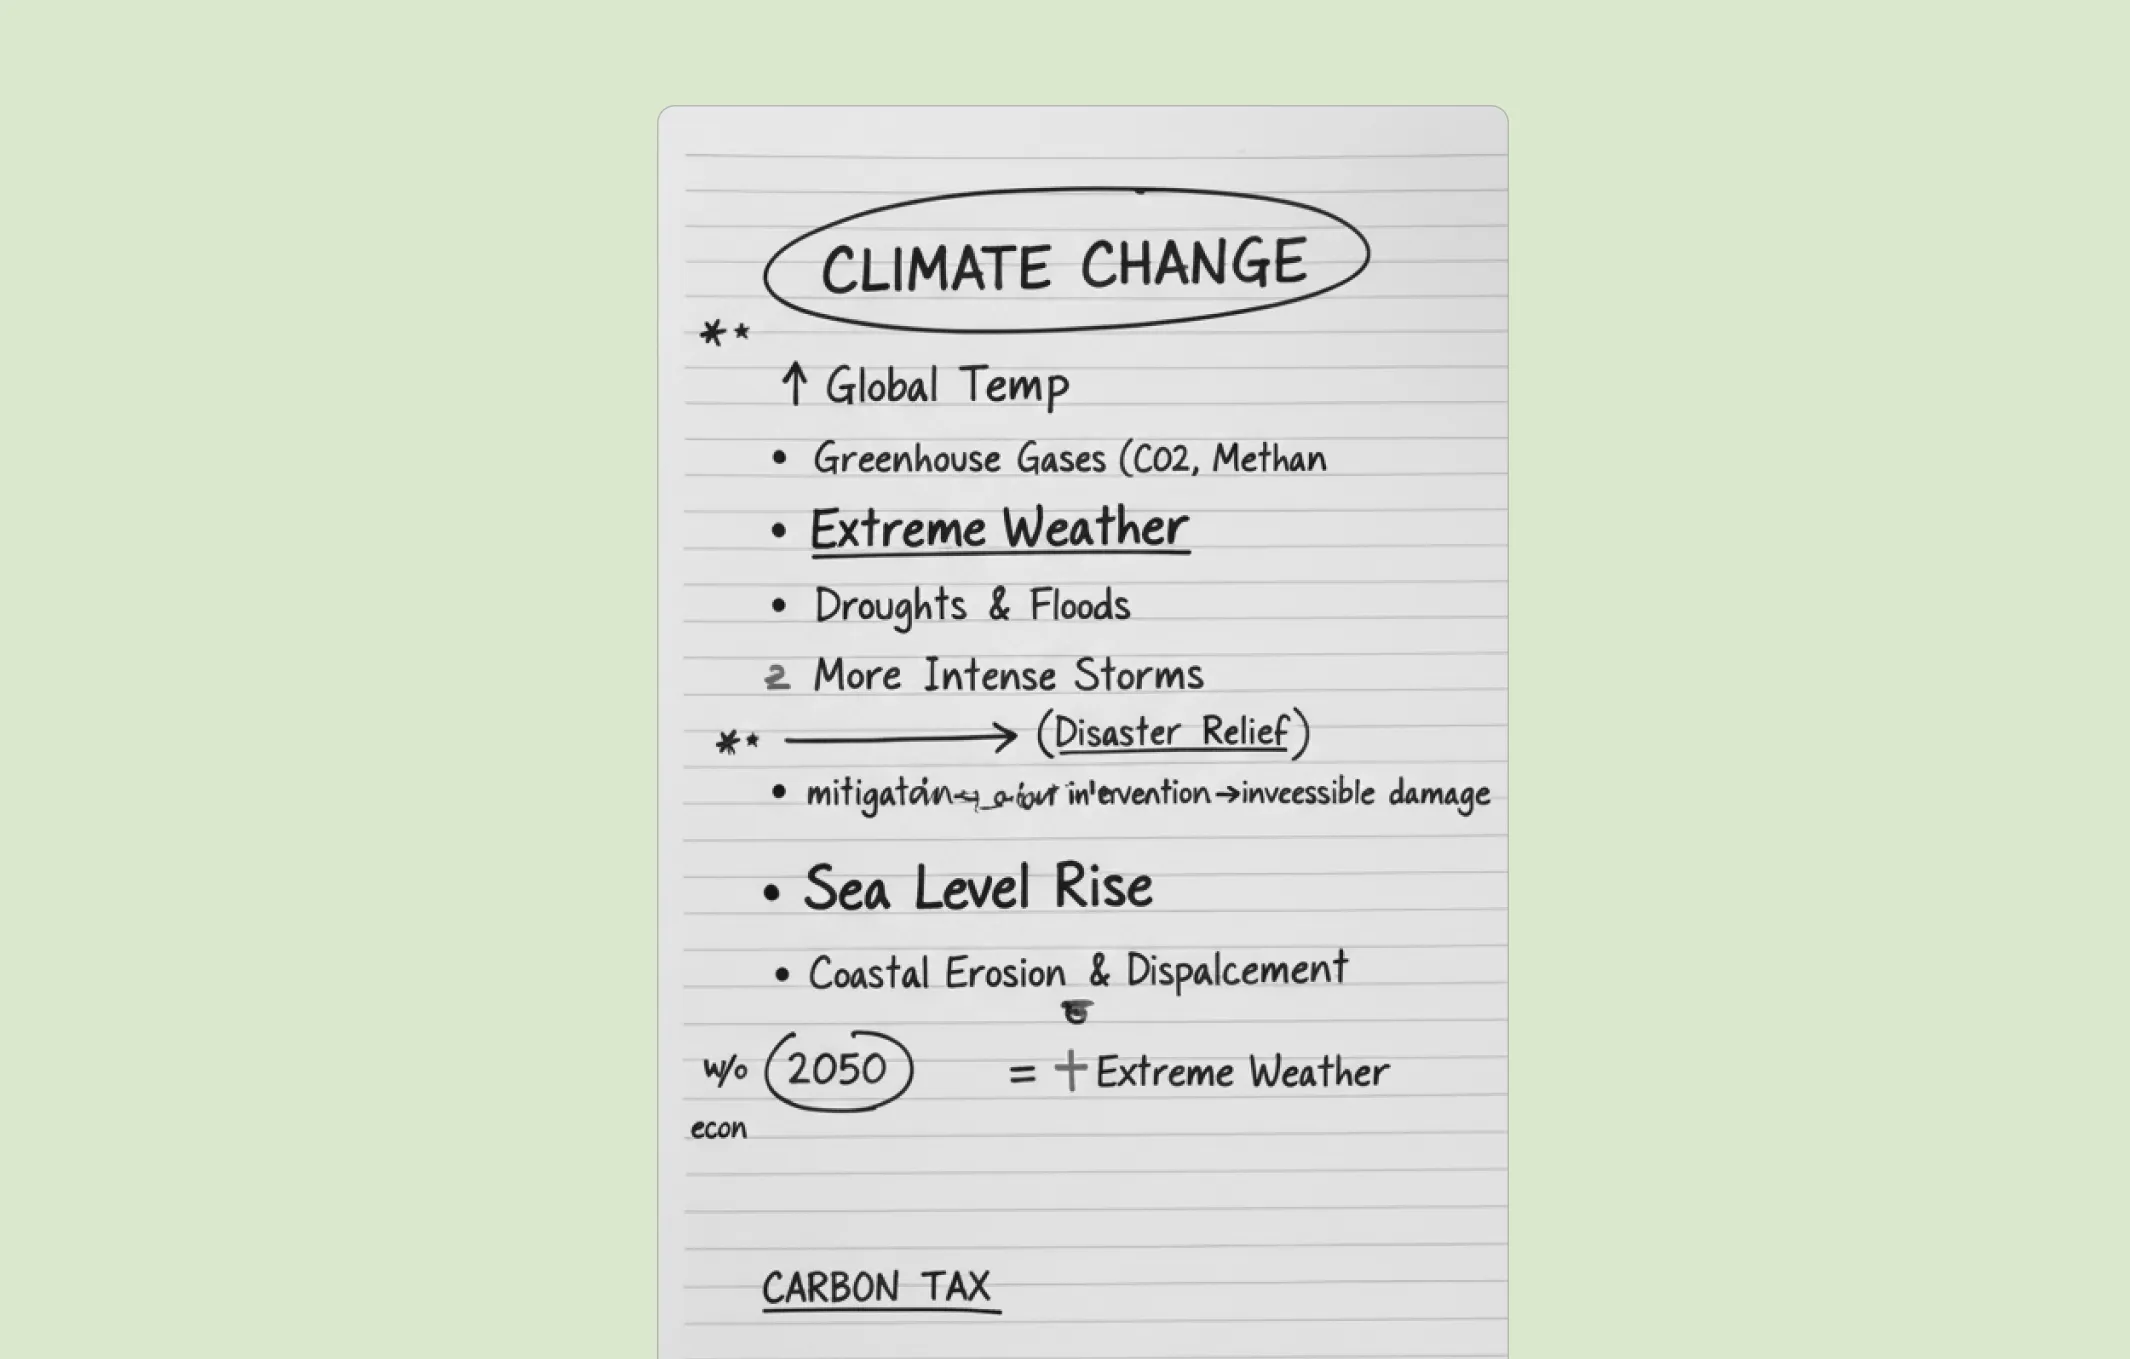 CLIMATE CHANGE
**
↑ Global Temp
• Greenhouse Gases (CO2, Methan
• Extreme Weather
• Droughts & Floods
2 More Intense Storms
** → (Disaster Relief)
• mitigatoin intervention→inveessible damage
• Sea Level Rise
• Coastal Erosion & Dispalcement
w/o 2050 = + Extreme Weather
econ
CARBON TAX